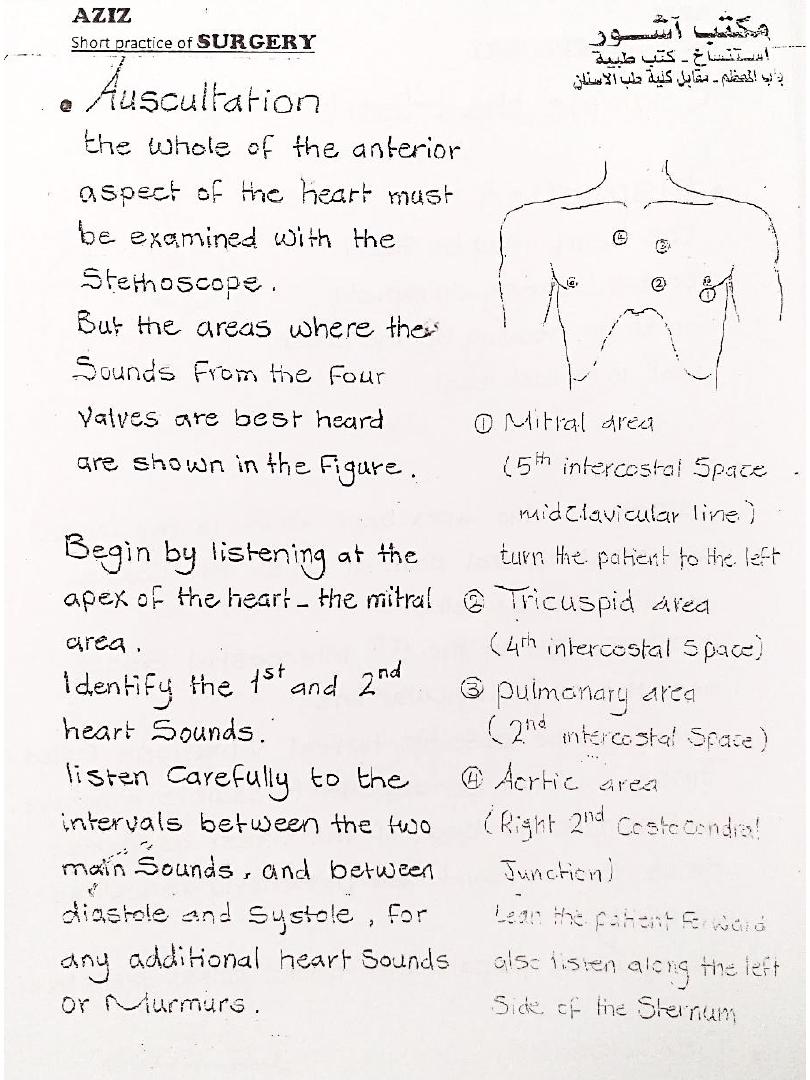 AZIZ
Short practice of SURGERY
مكتب آشور
استنساخ - كتب طبية
باب المعظم - مقابل كلية طب الاسنان
• Auscultation
the whole of the anterior
aspect of the heart must
be examined with the
Stethoscope.
But the areas where the
Sounds from the four
Valves are best heard
are shown in the Figure.
Begin by listening at the
apex of the heart - the mitral
area.
Identify the 1st and 2nd
heart Sounds.
listen Carefully to the
intervals between the two
main Sounds, and between
diastole and Systole, for
any additional heart Sounds
or Murmurs.
④
③
②
①
① Mitral area
(5th intercostal Space
midClavicular line)
turn the patient to the left
② Tricuspid area
(4th intercostal Space)
③ pulmonary area
(2nd intercostal Space)
④ Aortic area
(Right 2nd Costocondral
Junction)
Lean the patient Forward
also listen along the left
Side of the Sternum